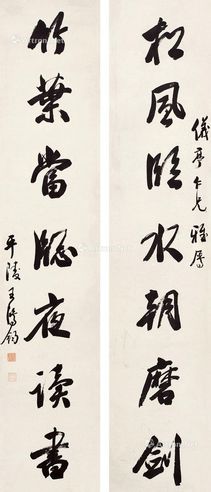 松風臨水朝磨劍
儀亭仁兄雅屬
竹葉當窗夜读書
平陵王鴻鈞